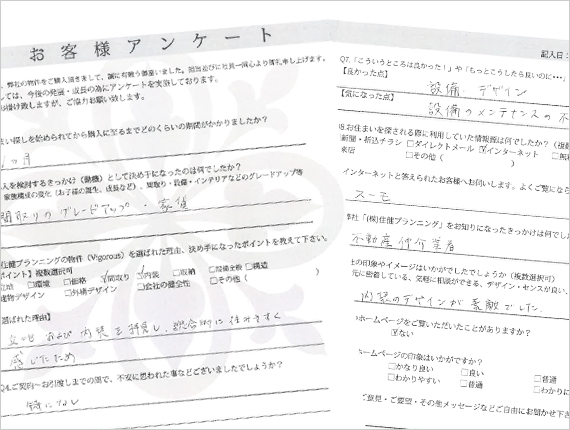 お客様アンケート
、弊社の物件をご購入頂きまして、誠に有難う御座いました。担当並びに社員一同心より御礼申し上げます。
しては、今後の発展・成長の為にアンケートを実施しております。
お掛け致しますが、ご協力お願い致します。
まい探しを始められてから購入に至るまでどのくらいの期間がかかりましたか?
ヶ月
入を検討するきっかけ(動機)として決め手になったのは何でしたか?
家族構成の変化(お子様の誕生、成長など)、間取り・設備・インテリアなどのグレードアップ等
間取りのグレードアップ・家賃
住健プランニングの物件(Vigorous)を選ばれた理由、決め手になったポイントを教えて下さい。
ポイント】複数選択可
立地 □環境 □価格 ☑間取り ☑内装 □収納 □設備全般 □構造
建物デザイン □外構デザイン □会社の健全性 □その他( )
選ばれた理由】
立地および内装を拝見し、総合的に住みやすく
感じたため
Q4.ご契約～お引渡しまでの間で、不安に思われた事などございましたでしょうか?
特になし
記入日:
Q7.「こういうところは良かった!」や「もっとこうしたら良いのに・・・」
【良かった点】
設備・デザイン
【気になった点】
設備のメンテナンスの不
8.お住まいを探される際に利用していた情報源は何でしたか?(複数
新聞・折込チラシ □ダイレクトメール ☑インターネット
来店 □その他( )
インターネットと答えられたお客様へお伺いします。よくご覧になら
スーモ
弊社「(株)住健プランニング」をお知りになったきっかけは何でした
不動産仲介業者
社の印象やイメージはいかがでしたでしょうか(複数選択可)
元に密着している、気軽に相談ができる、デザイン・センスが良い、
内装のデザインが素敵でした
ホームページをご覧いただいたことがありますか?
☑ない
ホームページの印象はいかがですか?
□かなり良い □良い □普通
□わかりやすい □普通 □わかりに
ご意見・ご要望・その他メッセージなどご自由にお聞かせ下さ